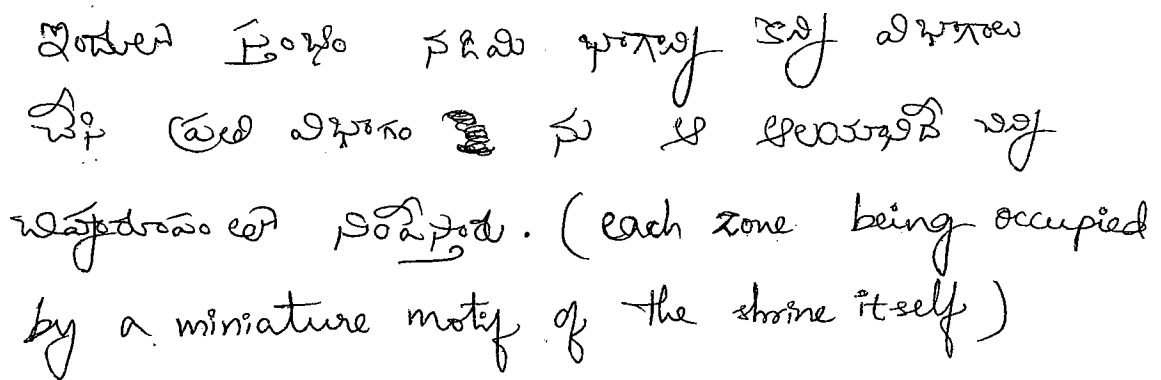 ఇందులో స్తంభం నడిమి భాగాన్ని కొన్ని విభాగాలు
చేసి ప్రతి విభాగం ను ఆ ఆలయానిదే చిన్ని
చిహ్నరూపంతో నింపేస్తారు. (each zone being occupied
by a miniature motif of the shrine itself)